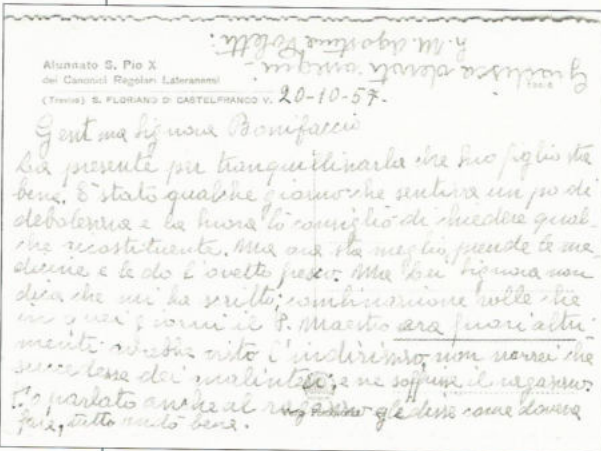 Alunnato S. Pio X
dei Canonici Regolari Lateranensi
(Treviso) S. FLORIANO DI CASTELFRANCO V. 20-10-57.
Gent ma Signora Bonifaccio
La presente per tranquilisarla che suo figlio sta
bene. E' stato qualche giorno che sentiva un po di
debolessa e la suora lo consigliò di chiedere qual-
che ricostituente. Ma ora sta meglio, prende le me-
dicine e le do l'ovetto fresco. Ma Lei Signora non
dica che mi ha scritto; combinazione volle che
in quei giorni il P. Maestro era fuori altri
menti avrebbe visto l'indirisso, non vorrei che
succedesse dei malintesi, e ne soffrisse il ragasso.
Ho parlato anche al ragasso gli dissi come doveva
fare, tutto andò bene.
Gradisca devoti ossequi.
Agostino Poletti